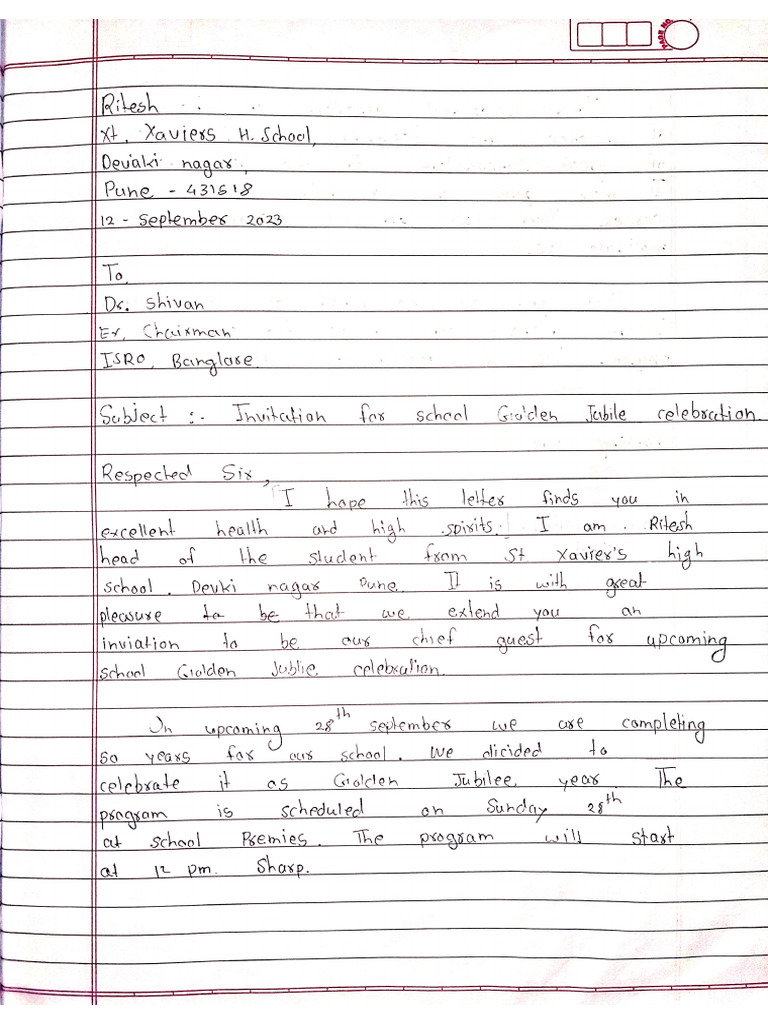 PAGE NO.
Ritesh
Xt. Xaviers H. School,
Devaki nagar,
Pune - 431518
12 - September 2023
To,
Dr. Shivan
Ex. Chairman
ISRO, Banglore.
Subject :- Invitation for school Golden Jubile celebration.
Respected Sir,
I hope this letter finds you in
excellent health and high spirits. I am Ritesh
head of the student from St Xavier's high
school. Devki nagar Pune. It is with great
pleasure to be that we extend you an
inviation to be our chief guest for upcoming
school Golden Jublie celebration.
In upcoming 28th september we are completing
50 years for our school. We dicided to
celebrate it as Golden Jubilee year. The
program is scheduled on Sunday 28th
at school Premies. The program will start
at 12 pm. Sharp.